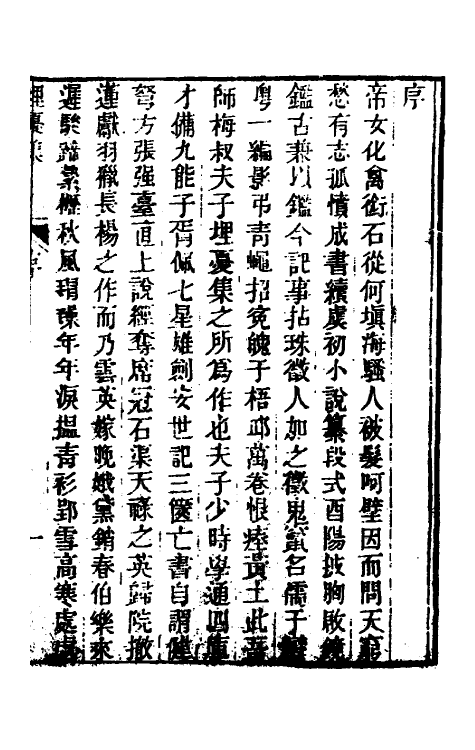 序
帝女化禽銜石從何塡海騷人被髮呵壁因而問天窮
愁有志孤憤成書續虞初小說纂段式酉陽披胸敗
鑑古兼以鑑今記事拈珠徵人加之徵鬼竄名儒子
粤一編影弔靑蠅招寃魄于梧邱萬卷恨瘞黃土此吾
師梅叔夫子埋憂集之所爲作也夫子少時學通四庫
才備九能子胥佩七星雄劍安世記三篋亡書自謂健
弩方張强臺直上說經奪席冠石渠天祿之英歸院撤
蓮獻羽獵長楊之作而乃雲英嫁晚娥黛銷春伯樂來
遲驂蹄縈櫪秋風瑣 年年淚搵靑衫郢雪高寒處
埋憂集 序 一